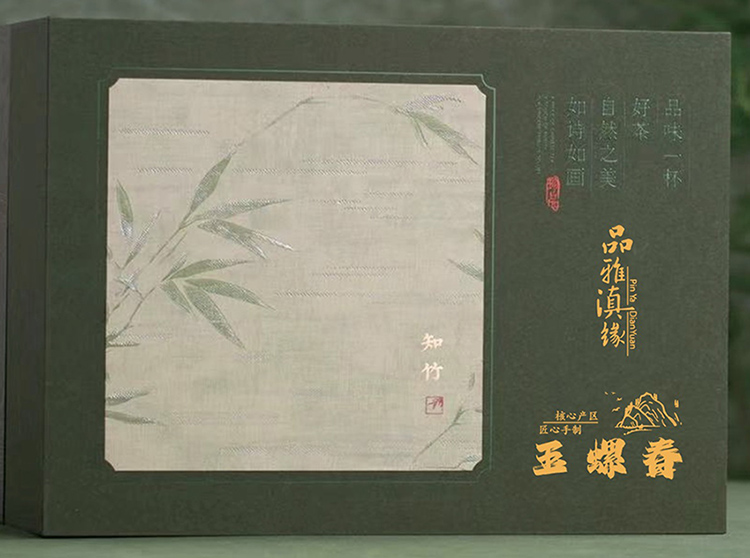 品味一杯
好茶
自然之美
如诗如画
品雅滇缘
Pin Ya DianYuan
知竹
核心产区
匠心手制
玉螺春